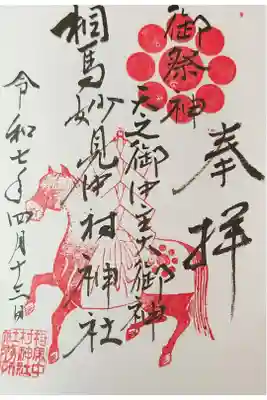 奉拝
御祭神
天之御中主大御神
相馬妙見中村神社
令和七年四月十三日
相馬中
村神社
社務所